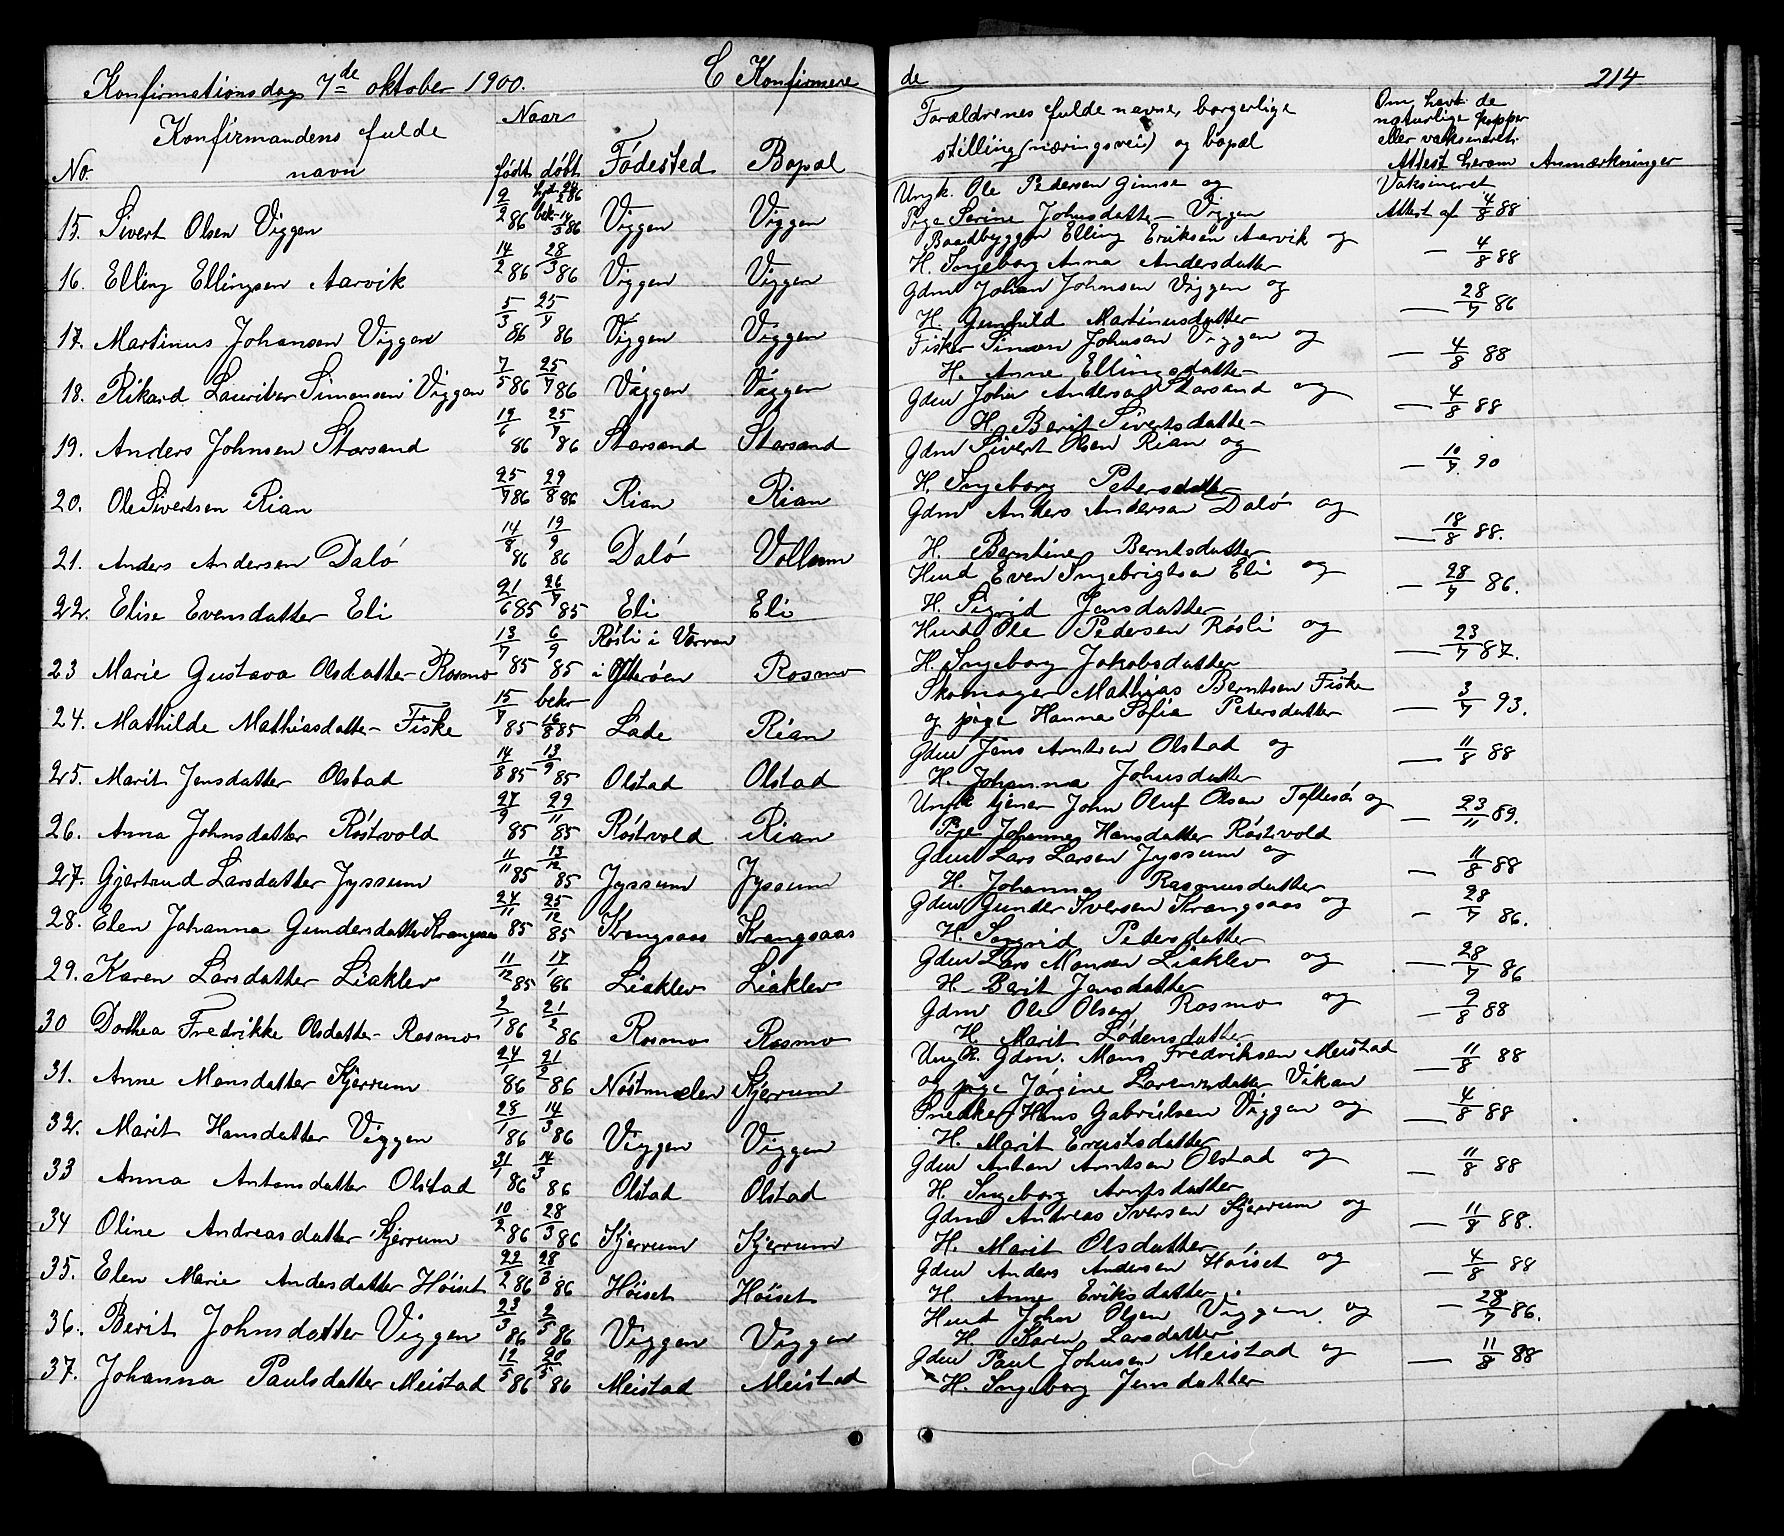 Konfirmationsdag 7de oktober 1900. C Konfirmere de 214
No Konfirmandens fulde navn Naar født døbt Fødested Bopæl Forældrenes fulde navne, borgerlige stilling (næringsvei) og bopæl Om havt de naturlige kopper eller vaksineret. Attest herom Anmærkninger
15. Sivert Olsen Viggen 9/2 86 hjd. 24/2 86 bek. 14/3 86 Viggen Viggen Ungk. Ole Pedersen Gimse og Pige Serine Johnsdatter Viggen Vaksineret Attest af 4/8 88
16. Elling Ellingsen Aarvik 14/2 86 28/3 86 Viggen Viggen Baadbygger Elling Eriksen Aarvik og H. Ingeborg Anna Andersdatter — 4/8 88
17. Martinus Johansen Viggen 5/3 86 25/7 86 Viggen Viggen Gdm Johan Johnsen Viggen og H. Gunhild Martinusdatter — 28/7 86
18. Rikard Lauritser Simonsen Viggen 7/5 86 25/7 86 Viggen Viggen Fisker Simon Johnsen Viggen og H. Anne Ellingsdatter — 4/8 88
19. Anders Johnsen Storsand 19/6 86 25/7 86 Storsand Storsand Gdm John Andersen Storsand og H. Berit Sivertsdatter — 4/8 88
20. Ole Sivertsen Rian 25/7 86 29/8 86 Rian Rian Gdm Sivert Olsen Rian og H. Ingeborg Petersdatter — 10/7 90
21. Anders Andersen Dalø 14/8 86 19/9 86 Dalø Vollum Gdm Anders Andersen Dalø og H. Berntine Berntsdatter — 18/8 88.
22. Elise Evensdatter Eli 21/6 85 26/7 85 Eli Eli Husd Even Ingebrigtsen Eli og H. Sigrid Jensdatter — 28/7 86.
23 Marie Gustava Olsdatter Rosmo 13/7 85 6/9 85 Røsli i Værran i Ytterøen Rosmo Husd Ole Pedersen Røsli og H. Ingeborg Jakobsdatter — 23/7 87.
24. Mathilde Mathiasdatter Fiske 15/7 85 bekr 16/8 85 Lade Rian Skomager Mathias Berntsen Fiske og pige Hanna Sofia Petersdatter — 3/7 93.
25. Marit Jensdatter Olstad 14/8 85 13/9 85 Olstad Olstad Gdm Jens Arntsen Olstad og H. Johanna Johnsdatter — 11/8 88
26. Anna Johnsdatter Røstvold 27/9 85 29/11 85 Røstvold Rian Ungk tjener John Oluf Olsen Toftesø og Pige Johanne Hansdatter Røstvold — 23/11 89.
27. Gjertrud Larsdatter Jyssum 11/11 85 13/12 85 Jyssum Jyssum Gdm Lars Larsen Jyssum og H. Johanna Rasmusdatter — 11/8 88
28. Elen Johanna Gundersdatter Krangsaas 24/11 85 25/12 85 Krangsaas Krangsaas Gdm Gunder Iversen Krangsaas og H. Sigrid Petersdatter — 28/7 86.
29. Karen Larsdatter Liaklev 11/12 85 17/1 86 Liaklev Liaklev Gdm Lars Monsen Liaklev og H. Berit Jensdatter — 28/7 86
30 Dorthea Fredrikke Olsdatter Rosmo 2/1 86 21/2 86 Rosmo Rosmo Gdm Ole Olsen Rosmo og H. Marit Lødensdatter — 9/8 88
31. Anne Monsdatter Skjerrum 24/1 86 21/2 86 Nøstmælen Skjerrum Ungk. Gdm. Mons Fredriksen Meistad og pige Jørgine Lorentsdatter Vikan — 11/8 88
32. Marit Hansdatter Viggen 28/1 86 14/3 86 Viggen Viggen Snedker Hans Gabrielsen Viggen og H. Marit Ernstsdatter — 4/8 88
33 Anna Antonsdatter Olstad 31/1 86 14/3 86 Olstad Olstad Gdm Anton Arntsen Olstad og H. Ingeborg Arntsdatter — 11/8 88
34 Oline Andreasdatter Skjerrum 10/2 86 28/3 86 Skjerrum Skjerrum Gdm Andreas Iversen Skjerrum og H. Marit Olsdatter — 11/8 88.
35. Elen Marie Andersdatter Høiset 22/2 86 28/3 86 Høiset Høiset Gdm Anders Andersen Høiset og H. Anne Eriksdatter. — 4/8 88
36. Berit Johnsdatter Viggen 23/3 86 2/5 86 Viggen Viggen Husd John Olsen Viggen og H. Karen Larsdatter — 28/7 86.
37. Johanna Paulsdatter Meistad 12/5 86 20/5 86 Meistad Meistad Gdm Paul Johnsen Meistad og H. Ingeborg Jensdatter — 11/8 88